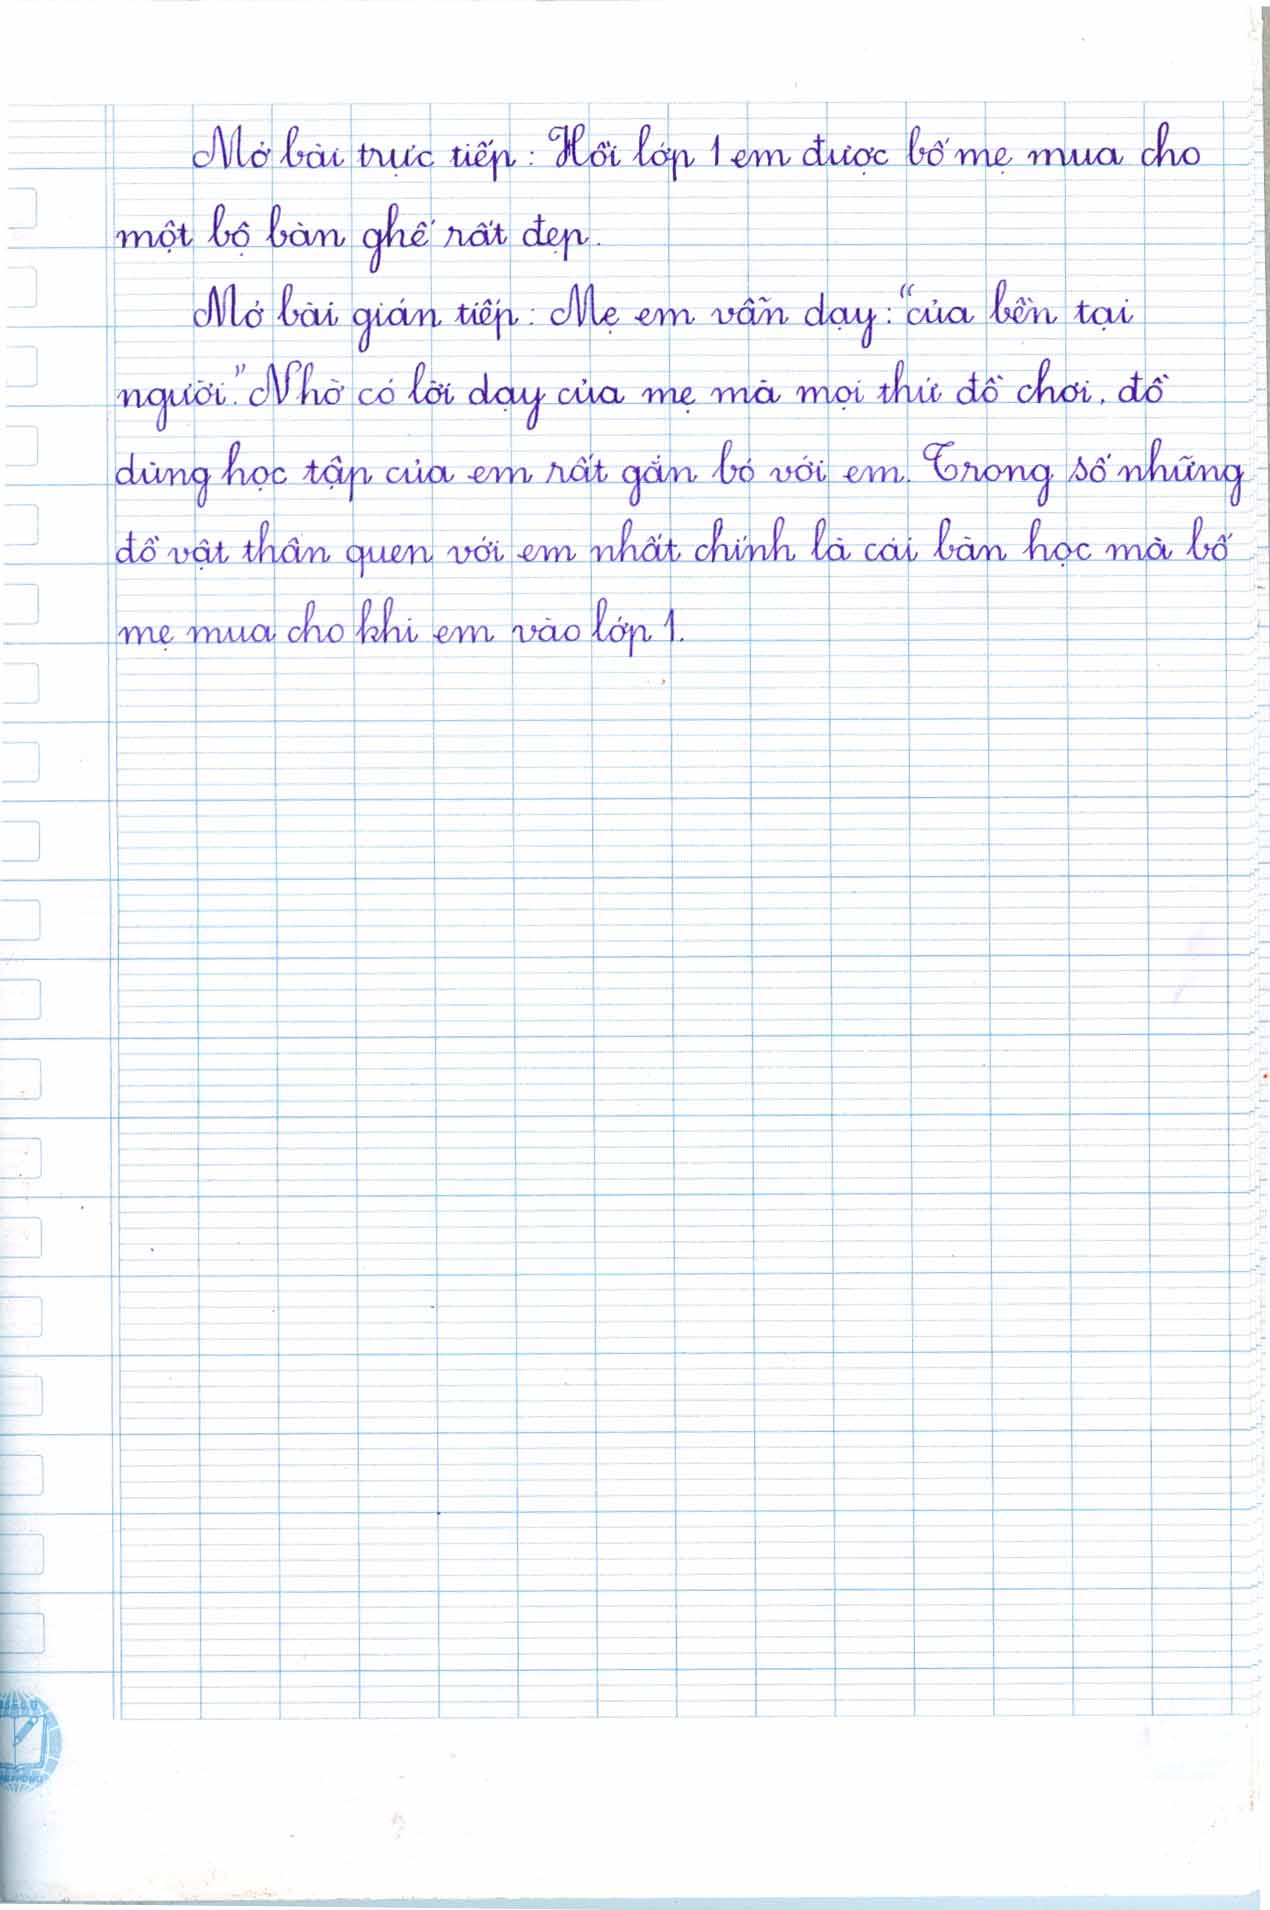 Mở bài trực tiếp: Hồi lớp 1 em được bố mẹ mua cho
một bộ bàn ghế rất đẹp.
Mở bài gián tiếp: Mẹ em vẫn dạy: "của bền tại
người." Nhờ có lời dạy của mẹ mà mọi thứ đồ chơi, đồ
dùng học tập của em rất gắn bó với em. Trong số những
đồ vật thân quen với em nhất chính là cái bàn học mà bố
mẹ mua cho khi em vào lớp 1.